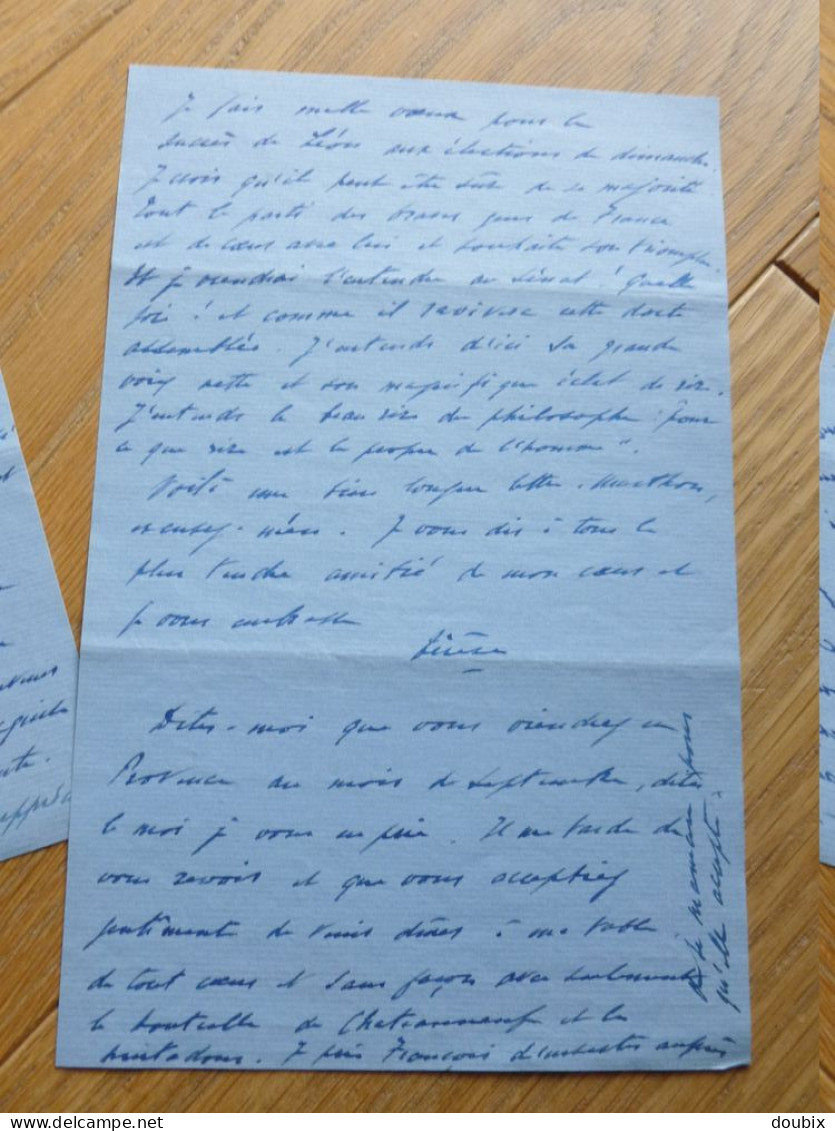 Je fais mille vœux pour le
succès de Léon aux élections de dimanche.
Je crois qu'il peut être sûr de sa majorité
Tout le parti des braves gens de France
est de cœur avec lui et souhaite son triomphe.
Et je viendrai l'entendre au Sénat ! Quelle
joie ! et comme il ravivera cette docte
assemblée. J'entends d'ici sa grande
voix nette et son magnifique éclat de rire.
J'entends le beau rire du philosophe "pour
ce que rire est le propre de l'homme".
Voilà une bien longue lettre. Marthon,
excusez-moi. Je vous dis à tous la
plus tendre amitié de mon cœur et
je vous embrasse
Dites-moi que vous viendrez en
Provence au mois de septembre, dites
le moi je vous en prie. Il me tarde de
vous revoir et que vous acceptiez
gentiment de venir dîner à ma table
de tout cœur et sans façon avec seulement
la bouteille de Chateauneuf et les
pintadons. Je prie François d'insister auprès
de sa maman pour
qu'elle accepte.